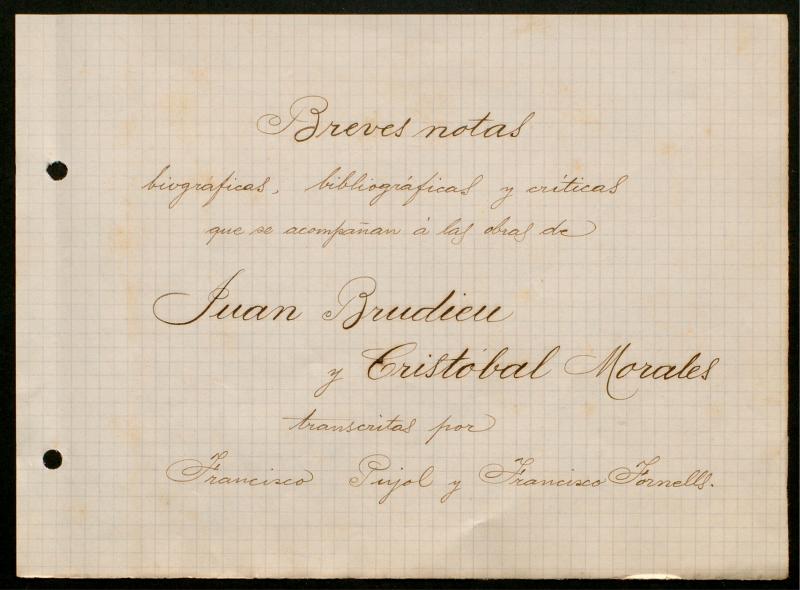 Breves notas
biográficas, bibliográficas y críticas
que se acompañan á las obras de
Juan Brudieu
y Cristóbal Morales
transcritas por
Francisco Pujol y Francisco Fornells.